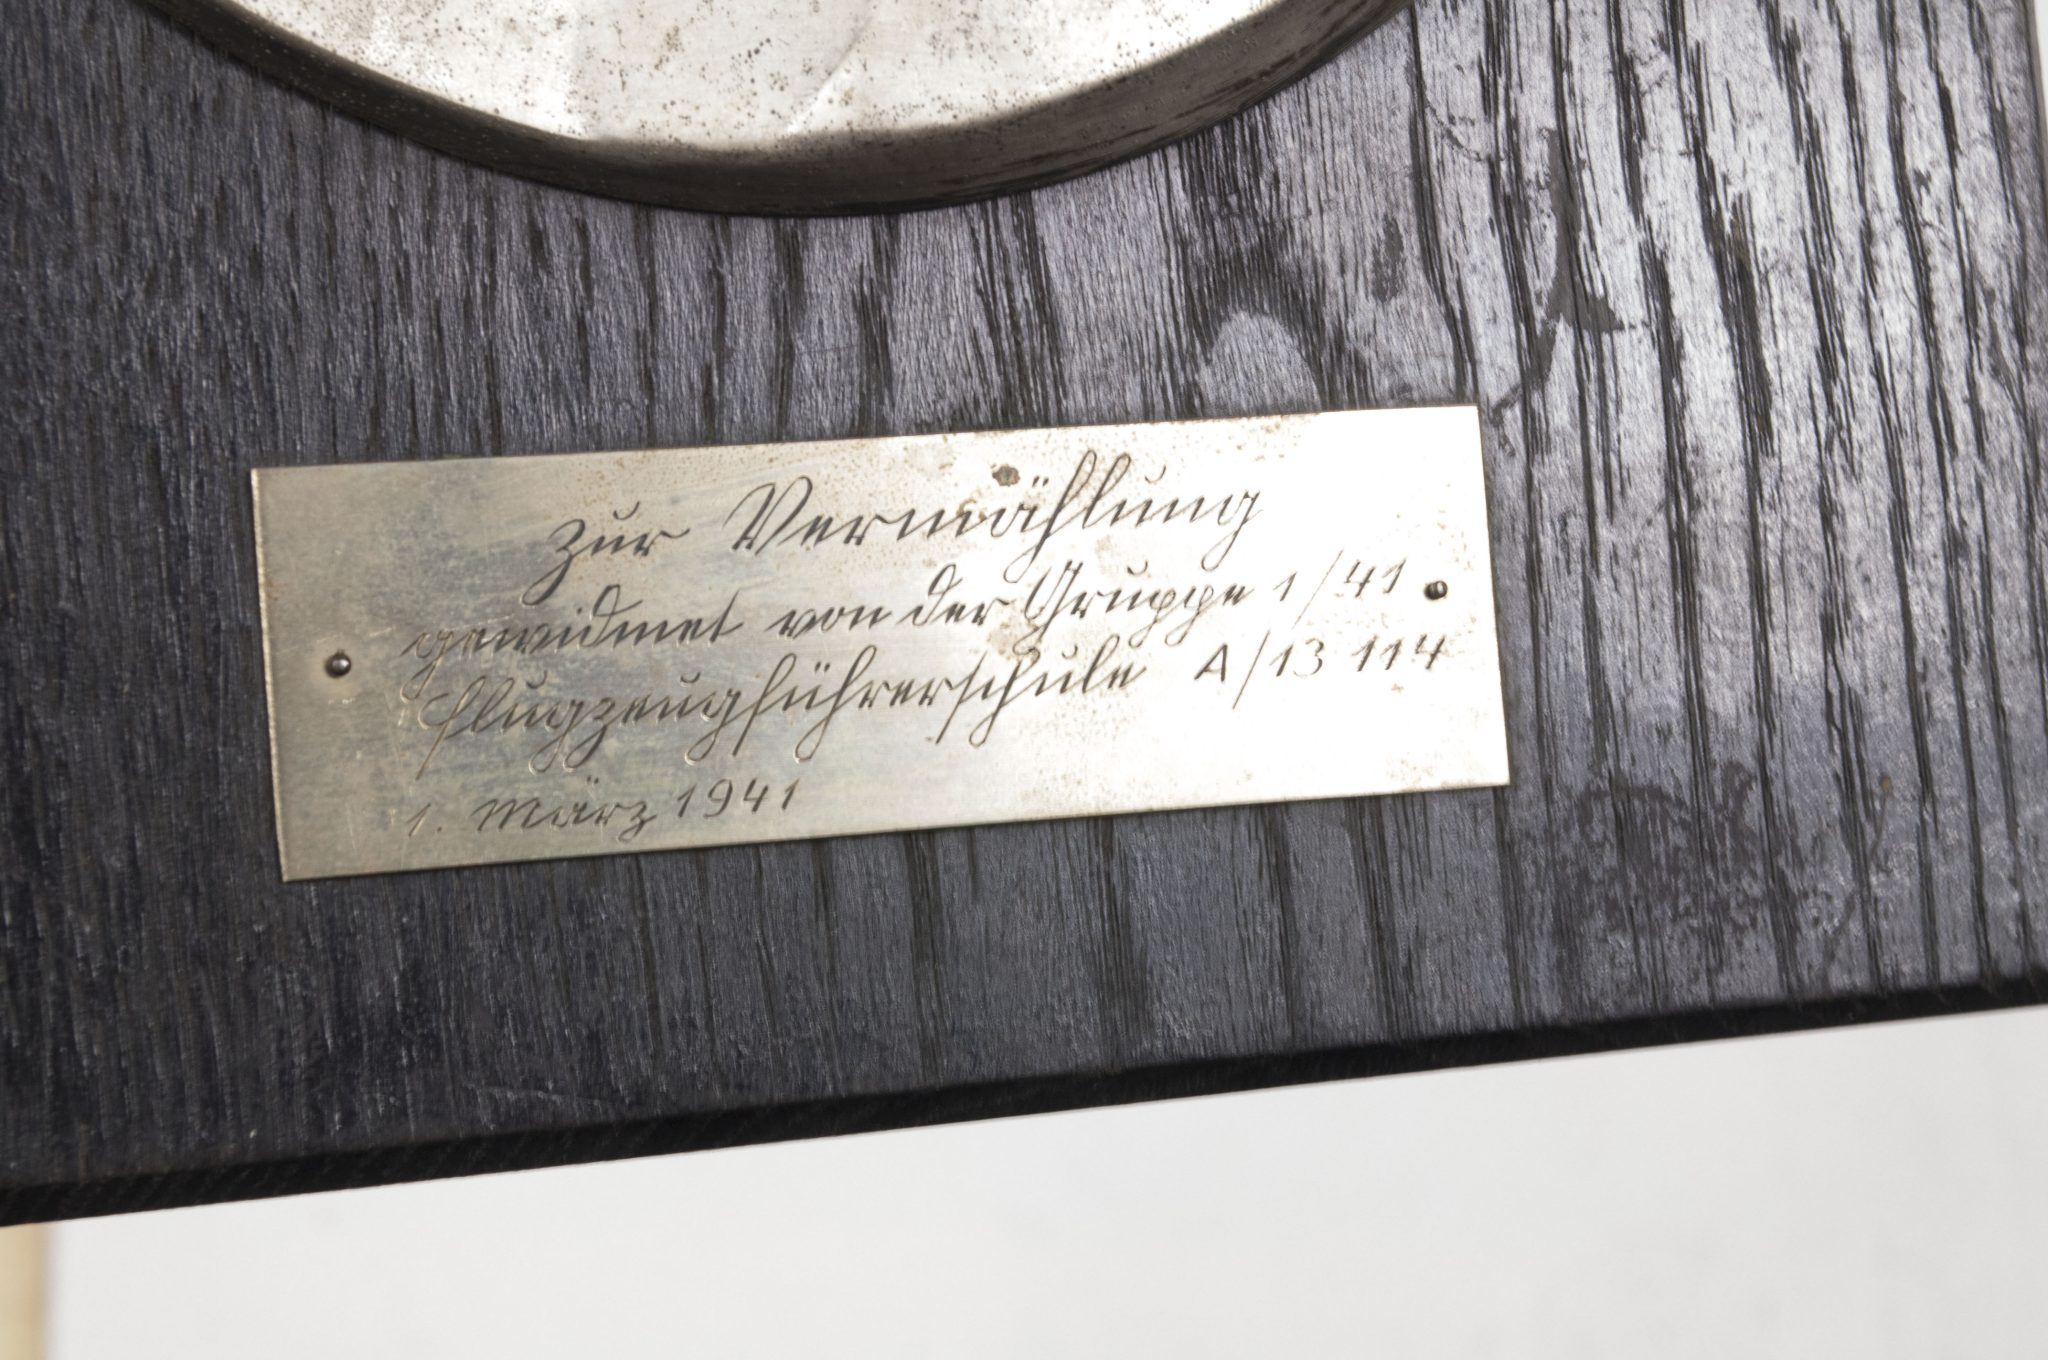 zur Vermählung
gewidmet von der Gruppe 1/41
Flugzeugführerschule A/B 114
1. März 1941